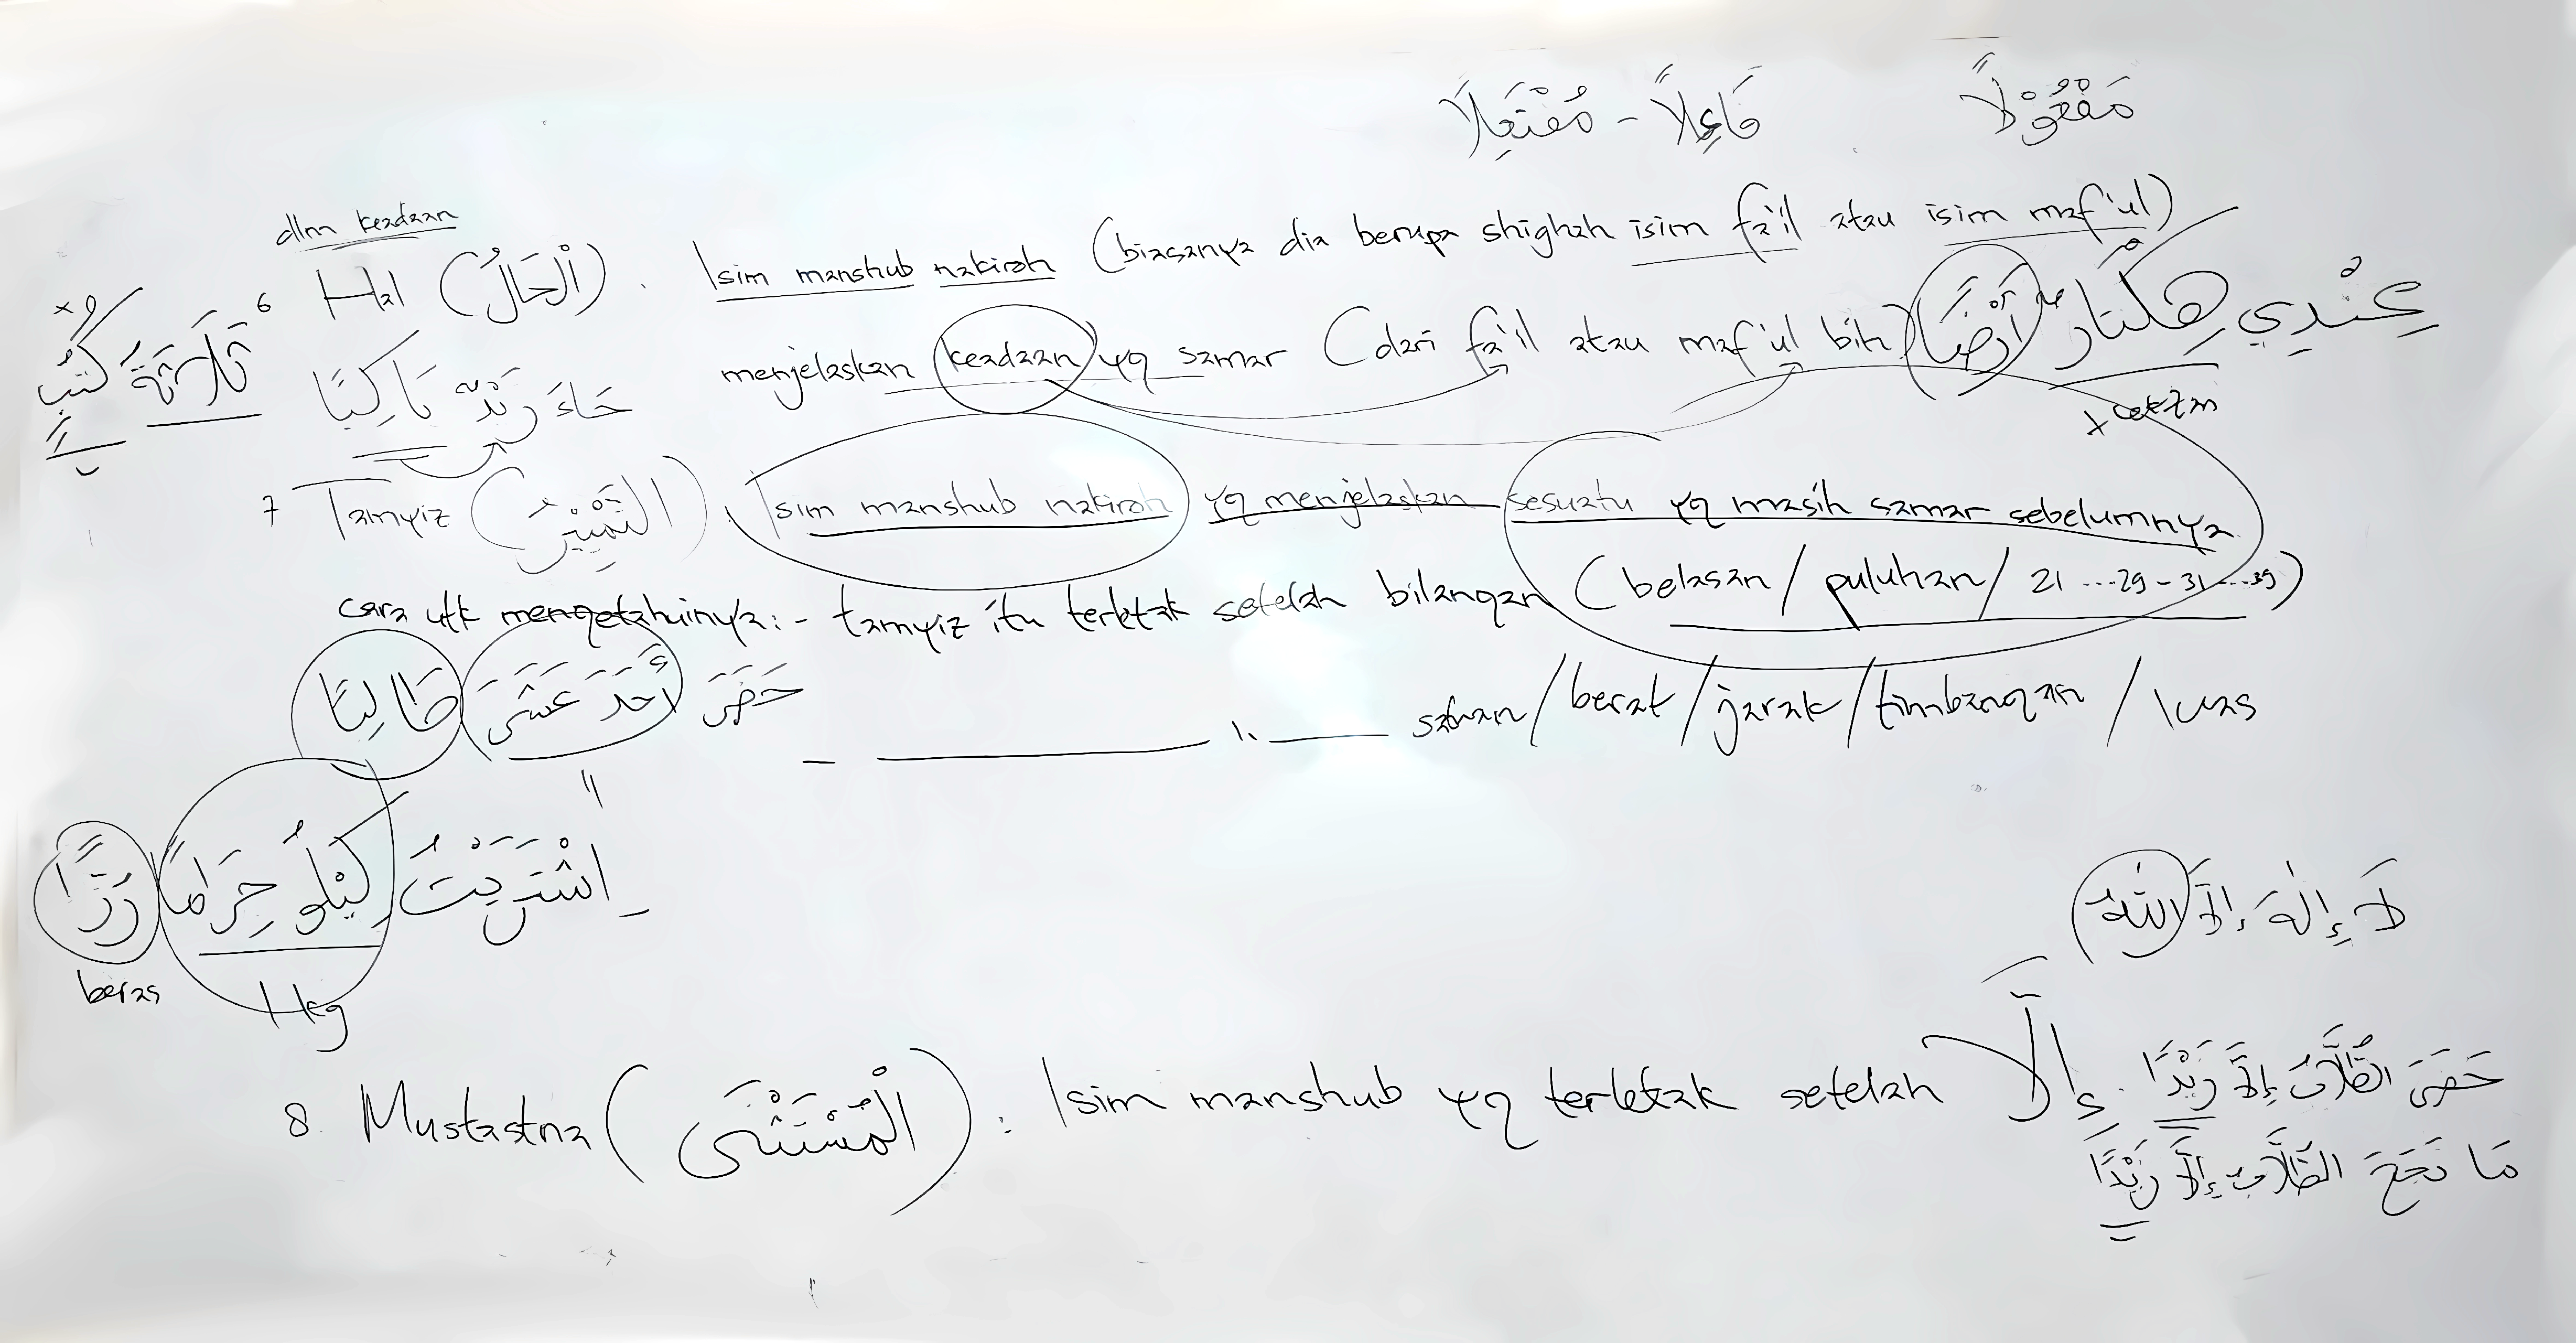 مَفْعُوْلاً
فَاعِلاً - مُفْتَعِلاً
dlm keadaan
6 Hal (اَلْحَالُ). Isim manshub nakiroh (biasanya dia berupa shighah isim fa'il atau isim maf'ul)
menjelaskan keadaan yg samar (dari fa'il atau maf'ul bih)
عِنْدِي هِكْتَارٌ أَرْضًا
ثَلَاثَةُ كُتُبٍ
جَاءَ زَيْدٌ بَاكِيًا
7 Tamyiz (التَّمْيِيْزُ). Isim manshub nakiroh yg menjelaskan sesuatu yg masih samar sebelumnya
cara utk mengetahuinya: - tamyiz itu terletak setelah bilangan (belasan / puluhan / 21 ...29 - 31 ...39)
حَضَرَ أَحَدَ عَشَرَ طَالِبًا
satuan / berat / jarak / timbangan / luas
11
اِشْتَرَيْتُ كِيْلُو جِرَامًا رُزًّا
beras
1 kg
لَا إِلٰهَ إِلَّا اللهُ
8. Mustastna (الْمُسْتَثْنَى) : Isim manshub yg terletak setelah إِلَّا
حَضَرَ الطُّلَّابُ إِلَّا زَيْدًا
مَا نَجَحَ الطُّلَّابُ إِلَّا زَيْدًا